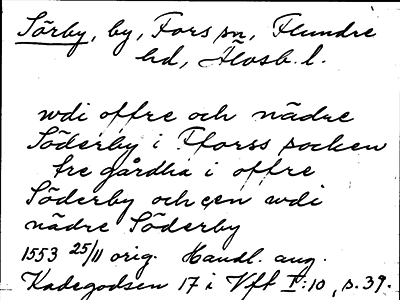 Sörby, by, Fors sn, Flundre
hd, Älvsb. l.
wdi offre och nädre
Söderby i Fforss socken
tre gårdha i offre
Söderby och een wdi
nädre Söderby
1553 25/11 orig. Handl. ang.
Kadegodsen 17 i Vft I:10, s. 39.